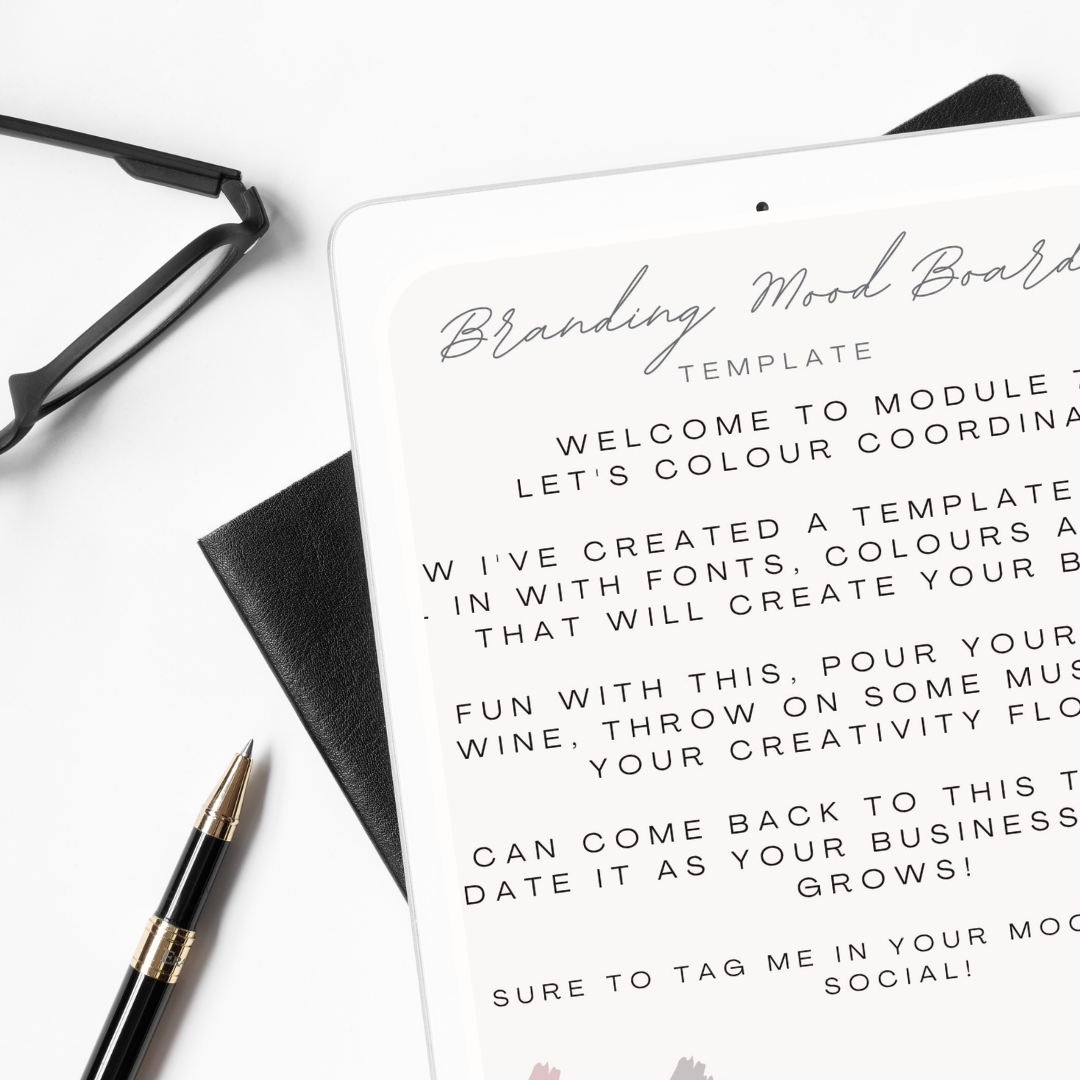 Branding Mood Board
TEMPLATE
WELCOME TO MODULE
LET'S COLOUR COORDINA
W I'VE CREATED A TEMPLATE
IN WITH FONTS, COLOURS A
THAT WILL CREATE YOUR B
FUN WITH THIS, POUR YOUR
WINE, THROW ON SOME MUS
YOUR CREATIVITY FLO
CAN COME BACK TO THIS T
DATE IT AS YOUR BUSINESS
GROWS!
SURE TO TAG ME IN YOUR MOO
SOCIAL!